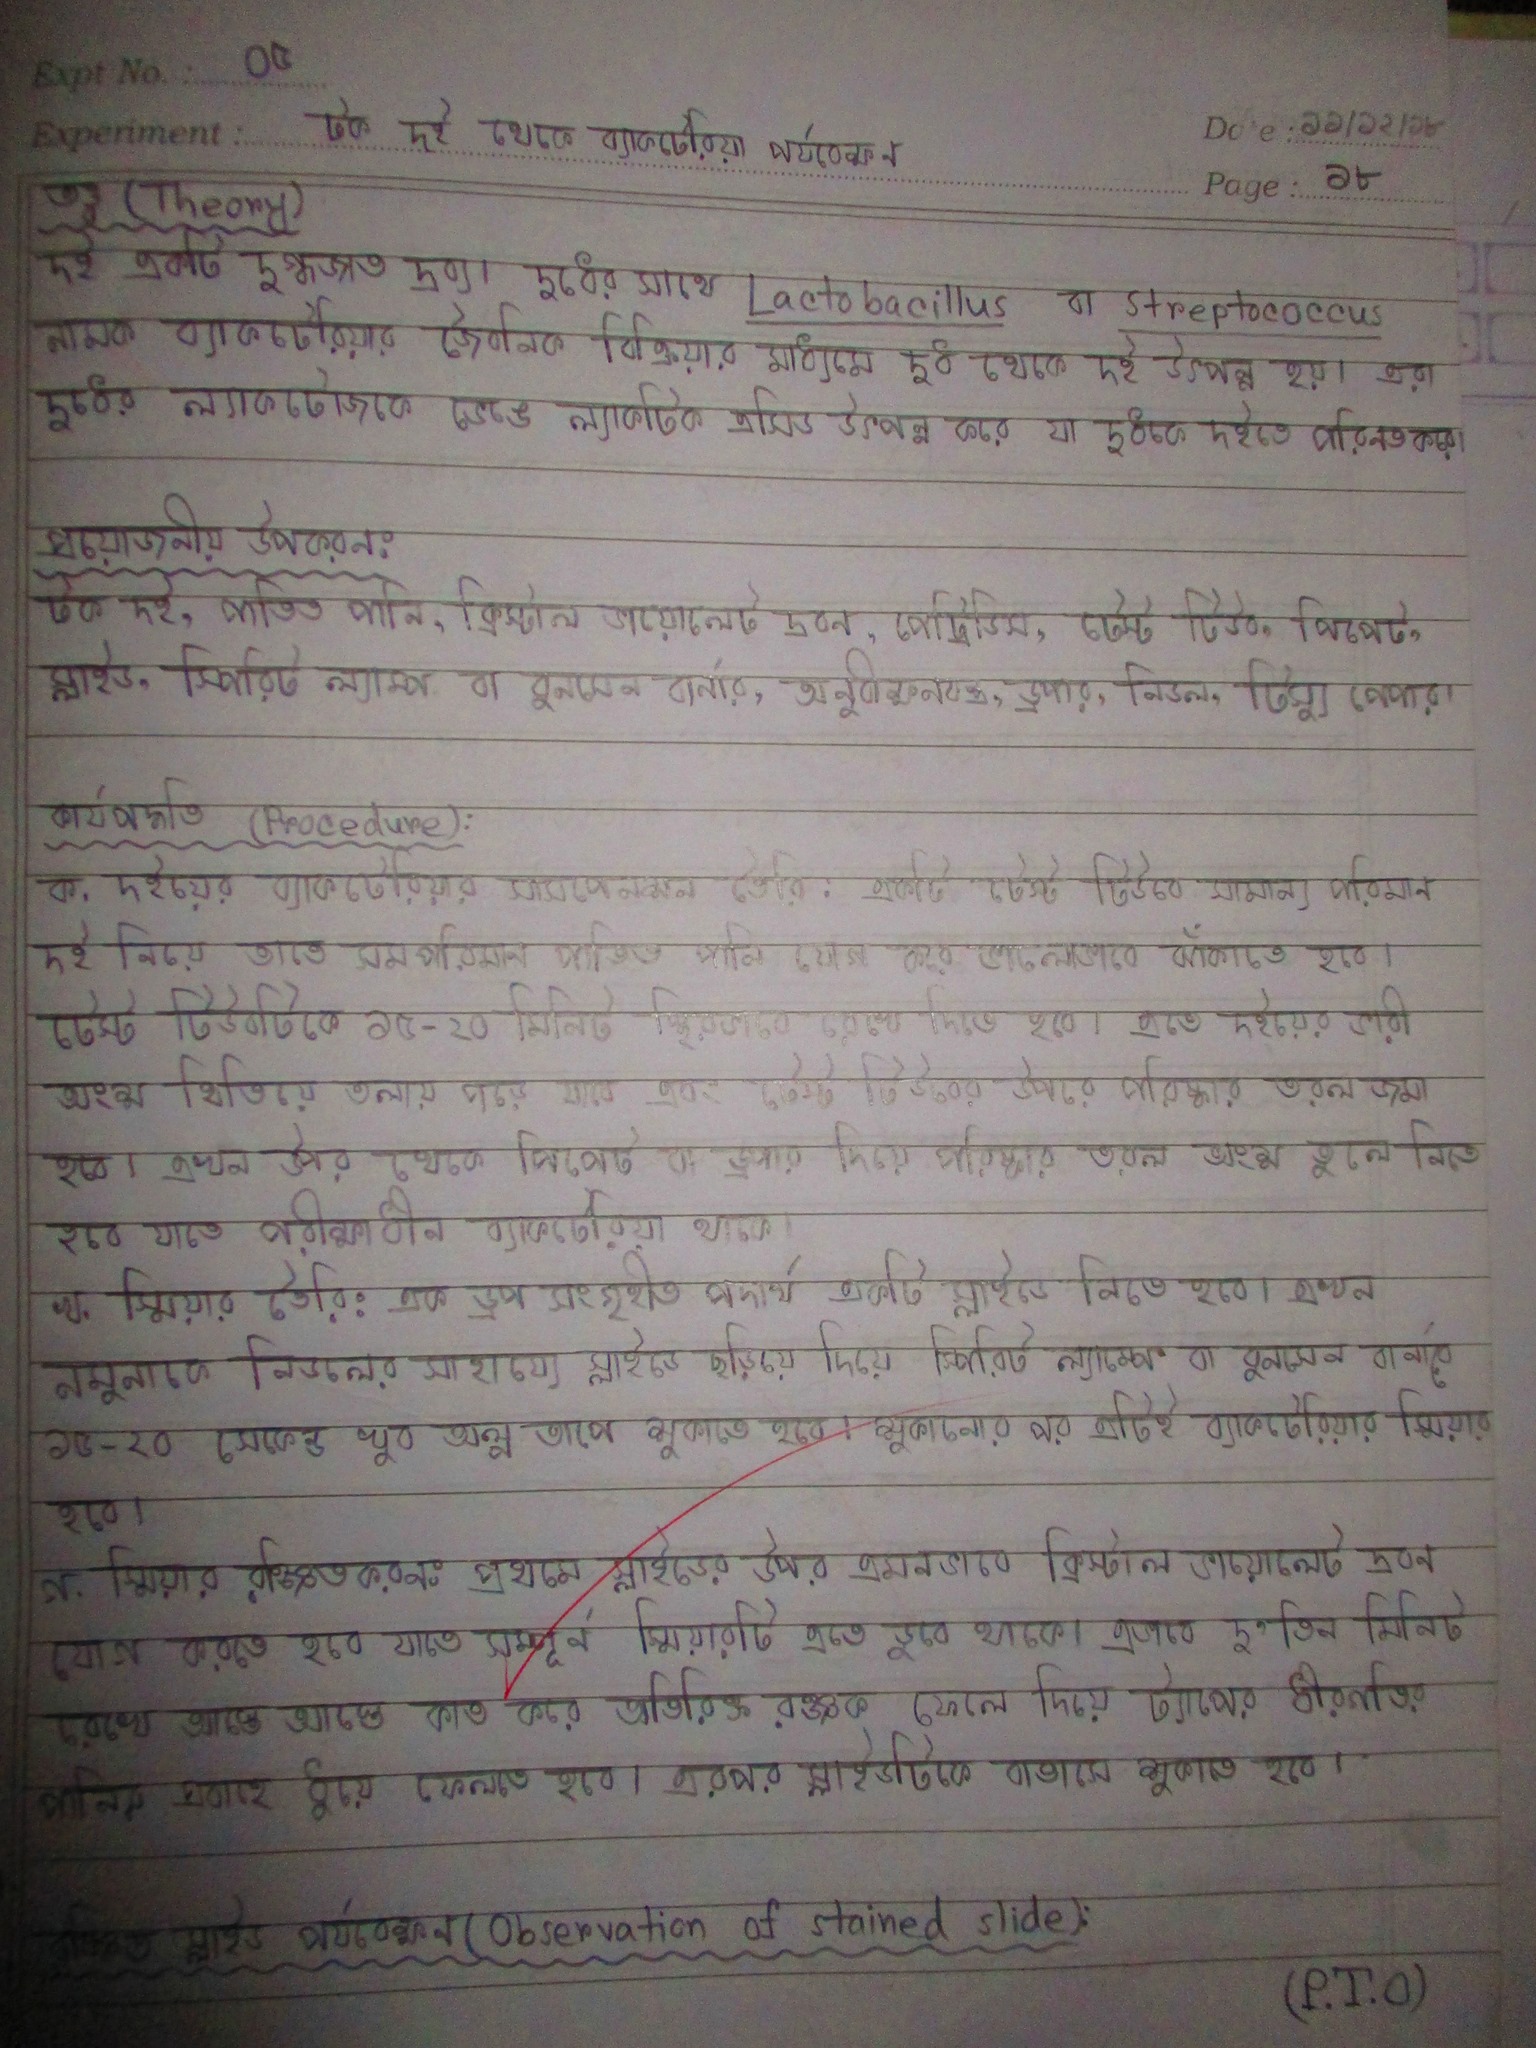 Expt No. : ০৫
Experiment : টক দই থেকে ব্যাকটেরিয়া পর্যবেক্ষন
Date : ১১/১২/১৮
Page : ১৮
তত্ত্ব (Theory)
দই একটি দুগ্ধজাত দ্রব্য। দুধের সাথে Lactobacillus বা Streptococcus
নামক ব্যাকটেরিয়ার জৈবনিক বিক্রিয়ার মাধ্যমে দুধ থেকে দই উৎপন্ন হয়। এরা
দুধের ল্যাকটোজকে ভেঙে ল্যাকটিক এসিড উৎপন্ন করে যা দুধকে দইতে পরিনত করে।
প্রয়োজনীয় উপকরন:
টক দই, পাতিত পানি, ক্রিস্টাল ভায়োলেট দ্রবন, পেট্রিডিস, টেস্ট টিউব, পিপেট,
স্লাইড, স্পিরিট ল্যাম্প বা বুনসেন বার্নার, অনুবীক্ষনযন্ত্র, ড্রপার, নিডল, টিস্যু পেপার।
কার্যপদ্ধতি (Procedure):
ক. দইয়ের ব্যাকটেরিয়ার সাসপেনশন তৈরি: একটি টেস্ট টিউবে সামান্য পরিমান
দই নিয়ে তাতে সমপরিমান পাতিত পানি যোগ করে ভালোভাবে ঝাঁকাতে হবে।
টেস্ট টিউবটিকে ১৫-২০ মিনিট স্থিরভাবে রেখে দিতে হবে। এতে দইয়ের ভারী
অংশ থিতিয়ে তলায় পড়ে যাবে এবং টেস্ট টিউবের উপরে পরিষ্কার তরল জমা
হবে। এখন উপর থেকে পিপেট বা ড্রপার দিয়ে পরিষ্কার তরল অংশ তুলে নিতে
হবে যাতে পরীক্ষাধীন ব্যাকটেরিয়া থাকে।
খ. স্মিয়ার তৈরি: এক ড্রপ সংগৃহীত পদার্থ একটি স্লাইডে নিতে হবে। এখন
নমুনাকে নিডলের সাহায্যে স্লাইডে ছড়িয়ে দিয়ে স্পিরিট ল্যাম্পে বা বুনসেন বার্নারে
১৫-২০ সেকেন্ড খুব অল্প তাপে শুকাতে হবে। শুকানোর পর এটিই ব্যাকটেরিয়ার স্মিয়ার
হবে।
গ. স্মিয়ার রঞ্জিতকরন: প্রথমে স্লাইডের উপর এমনভাবে ক্রিস্টাল ভায়োলেট দ্রবন
যোগ করতে হবে যাতে সম্পূর্ন স্মিয়ারটি এতে ডুবে থাকে। এভাবে দু'তিন মিনিট
রেখে আস্তে আস্তে কাত করে অতিরিক্ত রঞ্জক ফেলে দিয়ে ট্যাপের ধীরগতির
পানির প্রবাহে ধুয়ে ফেলতে হবে। এরপর স্লাইডটিকে বাতাসে শুকাতে হবে।
রঞ্জিত স্লাইড পর্যবেক্ষন (Observation of stained slide):
(P.T.O)